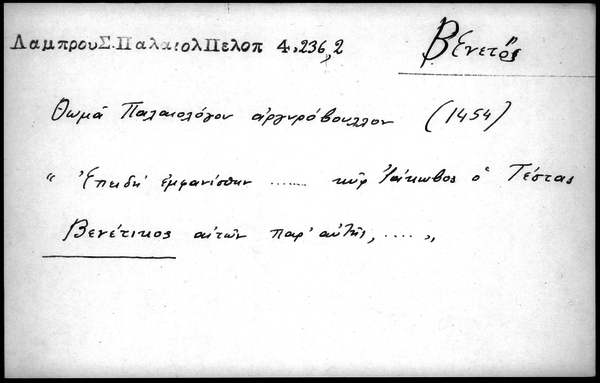 ΛαμπρουΣ.ΠαλαιολΠελοπ 4,236,2
Βενετός
Θωμᾶ Παλαιολόγου ἀργυρόβουλλον (1454)
" Ἐπειδή ἐμφανίσθην ....... κῦρ Ἰάκωβος ὁ Τέστας
Βενέτικος αἰτῶν παρ' αὐτῆς, ..... "